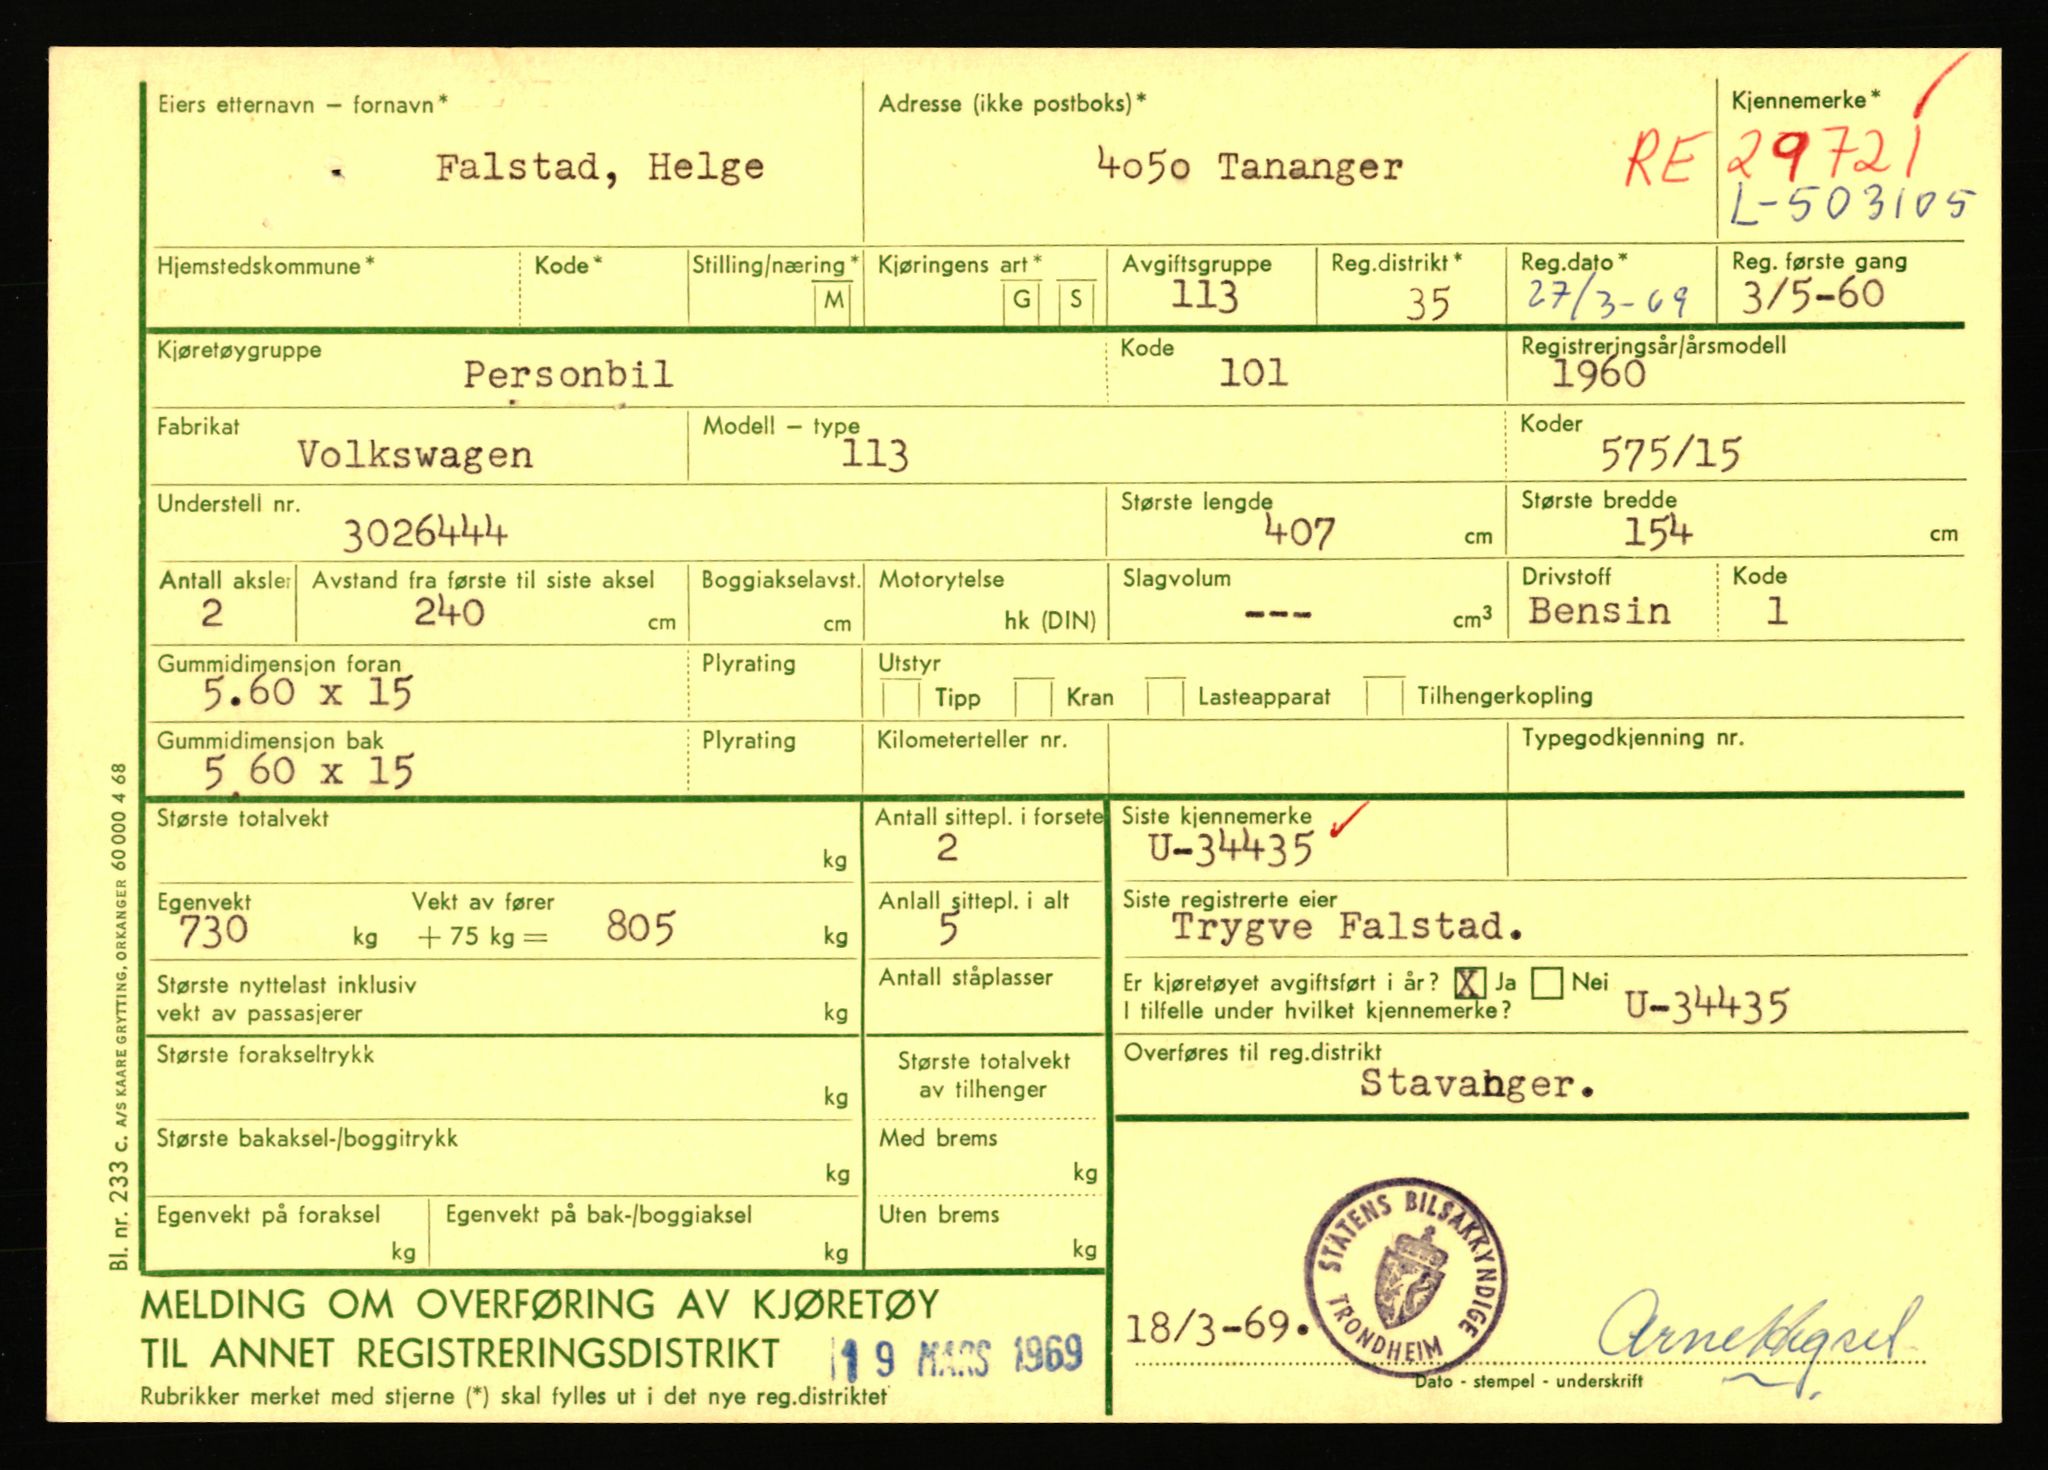 Eiers etternavn – fornavn*
Falstad, Helge
Adresse (ikke postboks)*
4050 Tananger
Kjennemerke*
RE 29721
L-503105
Hjemstedskommune*
Kode*
Stilling/næring*
M
Kjøringens art*
G S
Avgiftsgruppe
113
Reg.distrikt*
35
Reg.dato*
27/3-69
Reg. første gang
3/5-60
Kjøretøygruppe
Personbil
Kode
101
Registreringsår/årsmodell
1960
Fabrikat
Volkswagen
Modell – type
113
Koder
575/15
Understell nr.
3026444
Største lengde
407 cm
Største bredde
154 cm
Antall aksler
2
Avstand fra første til siste aksel
240 cm
Boggiakselavst.
cm
Motorytelse
hk (DIN)
Slagvolum
--- cm³
Drivstoff
Bensin
Kode
1
Gummidimensjon foran
5.60 x 15
Plyrating
Utstyr
Tipp Kran Lasteapparat Tilhengerkopling
Gummidimensjon bak
5.60 x 15
Plyrating
Kilometerteller nr.
Typegodkjenning nr.
Største totalvekt
kg
Antall sittepl. i forsete
2
Siste kjennemerke
U-34435
Egenvekt
730 kg
Vekt av fører
+ 75 kg = 805 kg
Anlall sittepl. i alt
5
Siste registrerte eier
Trygve Falstad.
Største nyttelast inklusiv
vekt av passasjerer kg
Antall ståplasser
Er kjøretøyet avgiftsført i år? X Ja Nei
I tilfelle under hvilket kjennemerke? U-34435
Største forakseltrykk
kg
Største totalvekt
av tilhenger
Overføres til reg.distrikt
Stavanger.
Største bakaksel-/boggitrykk
kg
Med brems
kg
Egenvekt på foraksel
kg
Egenvekt på bak-/boggiaksel
kg
Uten brems
kg
MELDING OM OVERFØRING AV KJØRETØY
TIL ANNET REGISTRERINGSDISTRIKT
19 MARS 1969
Rubrikker merket med stjerne (*) skal fylles ut i det nye reg.distriktet
18/3-69.
STATENS BILSAKKYNDIGE
TRONDHEIM
Dato - stempel - underskrift
Bl. nr. 233 c. A/S KAARE GRYTTING, ORKANGER 60000 4 68